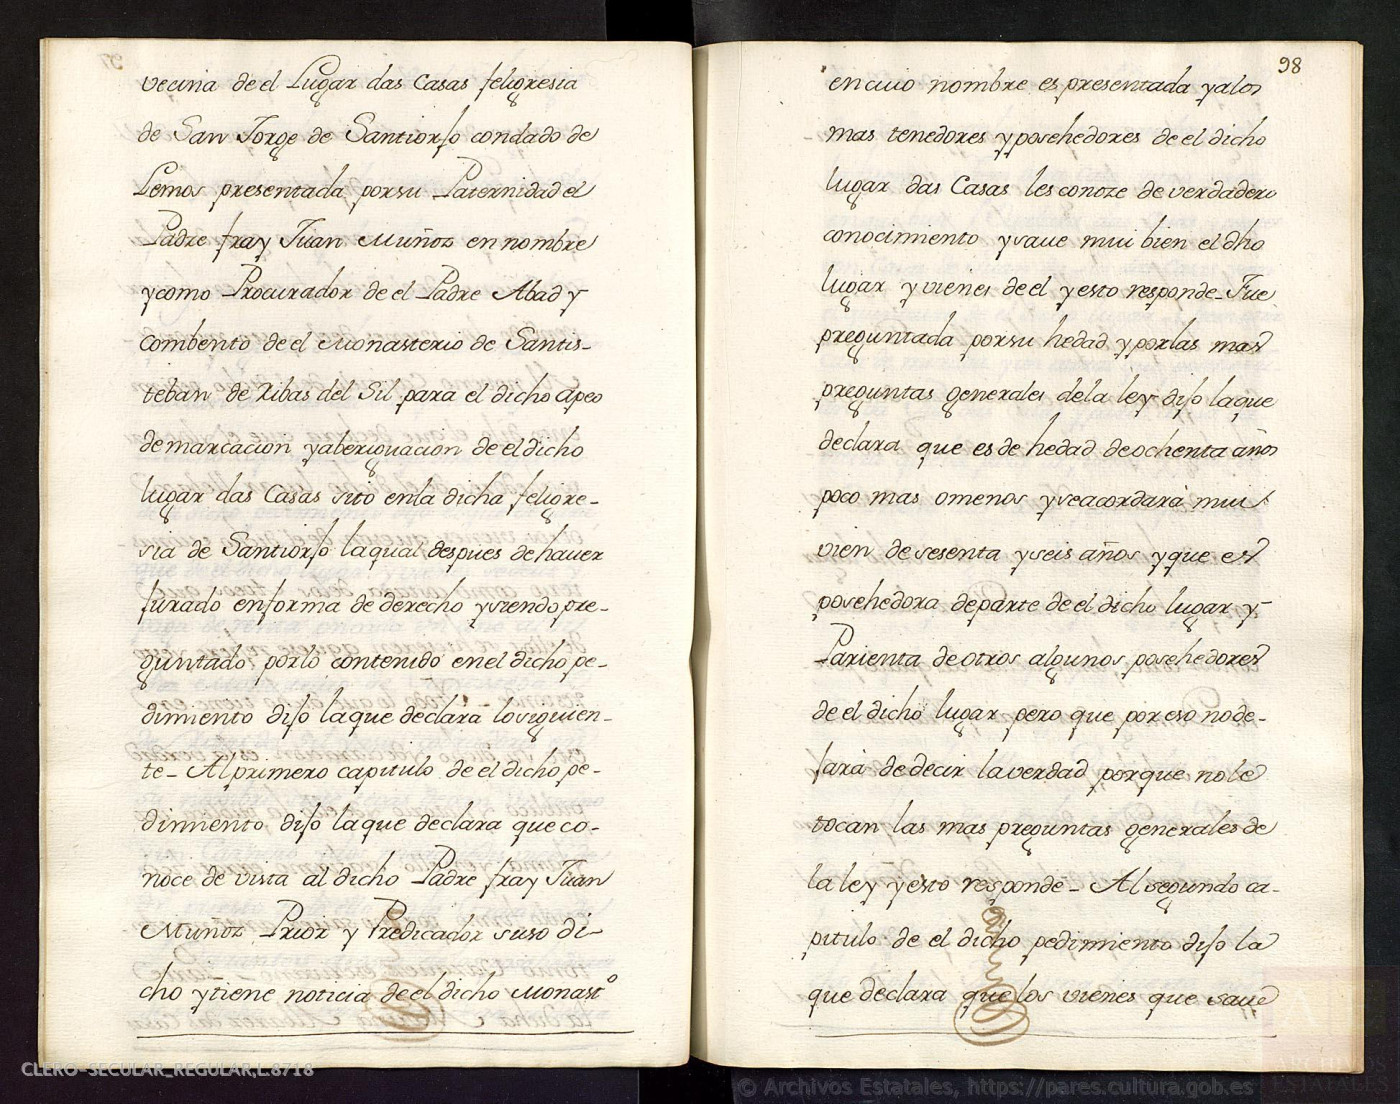 vecina de el Lugar das Casas feligresia
de San Jorge de Santiorjo condado de
Lemos presentada por su Paternidad el
Padre fray Juan Muñoz en nombre
y como Procurador de el Padre Abad y
combento de el Monasterio de Santis-
teban de Ribas del Sil para el dicho apeo
demarcacion y aberiguacion de el dicho
lugar das Casas sito en la dicha feligre-
sia de Santiorjo la qual despues de hauer
jurado en forma de derecho y siendo pre-
guntado por lo contenido en el dicho pe-
dimiento dijo la que declara lo siguien-
te- Al primero capitulo de el dicho pe-
dimiento dijo la que declara que co-
noce de vista al dicho Padre fray Juan
Muñoz Prior y Predicador suso di-
cho y tiene noticia de el dicho Monastº
98
en cuio nombre es presentada y a los
mas tenedores y posehedores de el dicho
lugar das Casas les conoze de verdadero
conocimiento y saue mui bien el dho
lugar y vienes de el y esto responde- Fue
preguntada por su hedad y por las mas
preguntas generales de la ley dijo la que
declara que es de hedad de ochenta años
poco mas o menos y se acordarà mui
vien de sesenta y seis años y que es
posehedora de parte de el dicho lugar y
Parienta de otros algunos posehedores
de el dicho lugar pero que por eso no de-
jarà de decir la verdad porque no le
tocan las mas preguntas generales de
la ley y esto responde- Al segundo ca-
pitulo de el dicho pedimiento dijo la
que declara que los vienes que saue
CLERO-SECULAR_REGULAR,L.8718
© Archivos Estatales, https://pares.cultura.gob.es
ARCHIVOS
ESTATALES